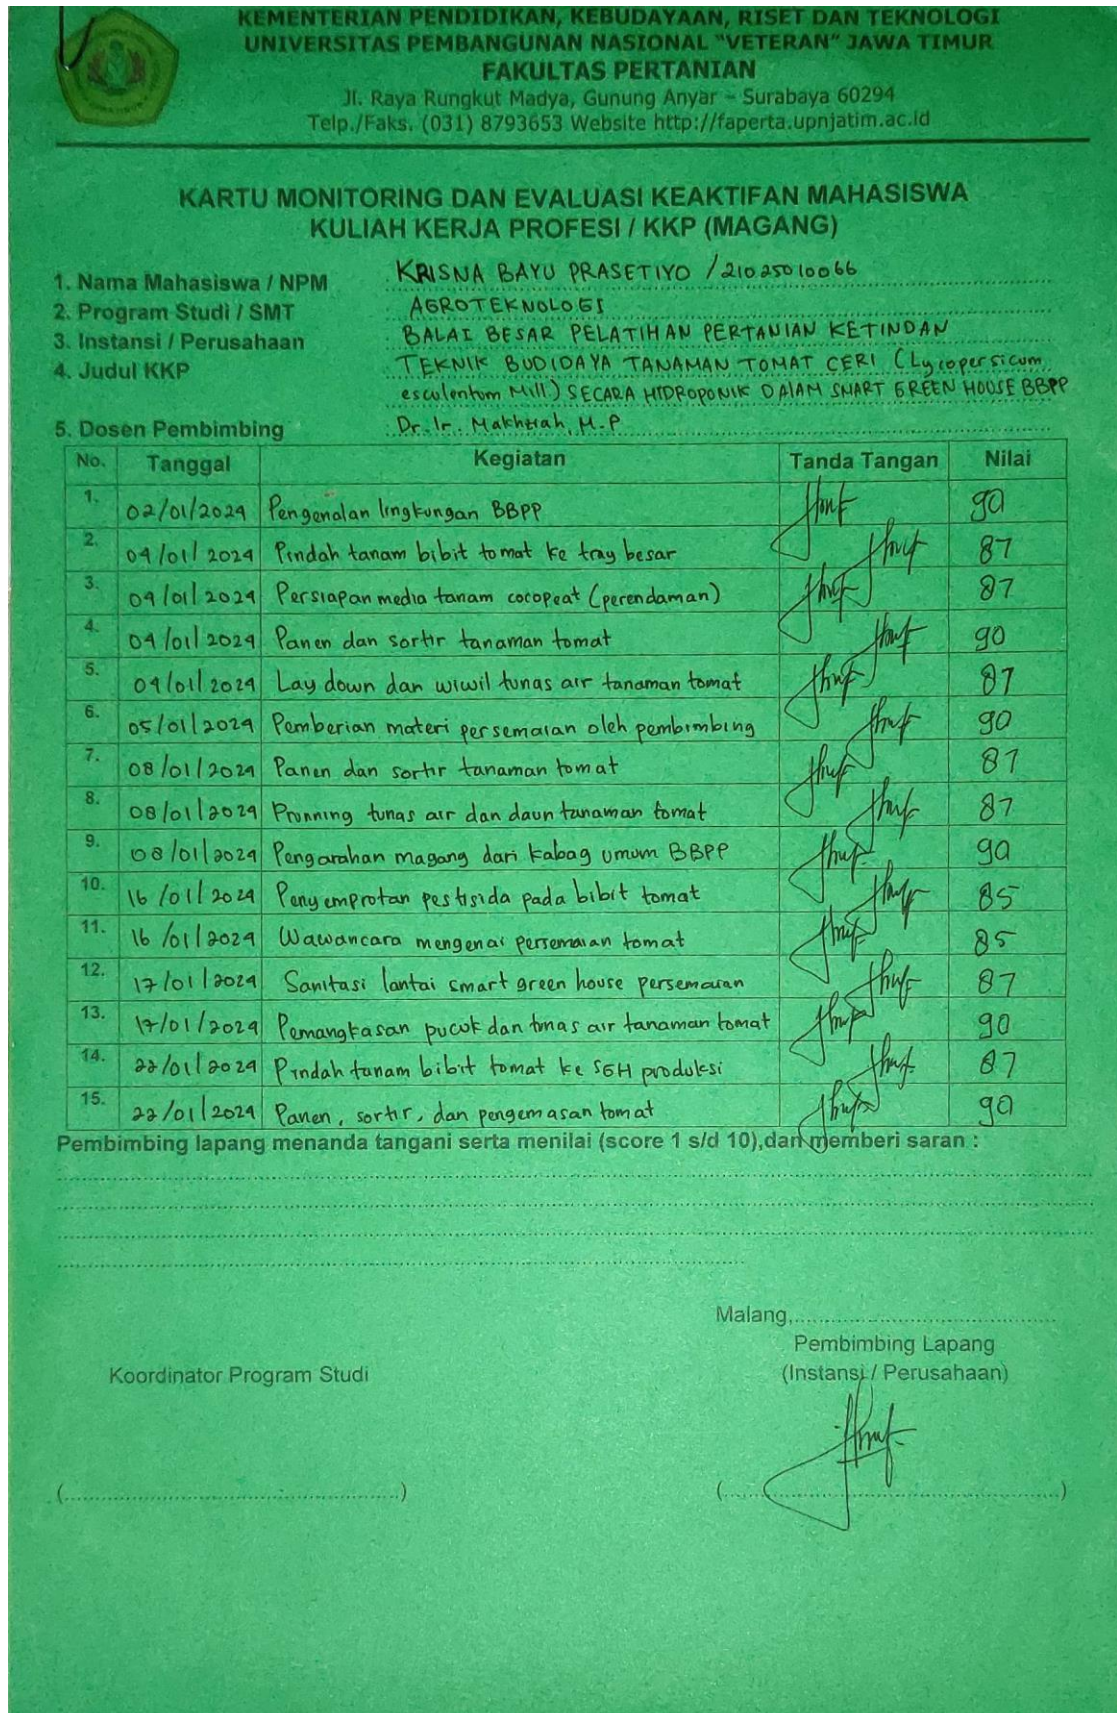 KEMENTERIAN PENDIDIKAN, KEBUDAYAAN, RISET DAN TEKNOLOGI
UNIVERSITAS PEMBANGUNAN NASIONAL "VETERAN" JAWA TIMUR
FAKULTAS PERTANIAN
Jl. Raya Rungkut Madya, Gunung Anyar – Surabaya 60294
Telp./Faks. (031) 8793653 Website http://faperta.upnjatim.ac.id
KARTU MONITORING DAN EVALUASI KEAKTIFAN MAHASISWA
KULIAH KERJA PROFESI / KKP (MAGANG)
1. Nama Mahasiswa / NPM KRISNA BAYU PRASETIYO / 21025010066
2. Program Studi / SMT AGROTEKNOLOGI
3. Instansi / Perusahaan BALAI BESAR PELATIHAN PERTANIAN KETINDAN
4. Judul KKP TEKNIK BUDIDAYA TANAMAN TOMAT CERI (Lycopersicum
esculentum Mill.) SECARA HIDROPONIK DALAM SMART GREEN HOUSE BBPP
5. Dosen Pembimbing Dr. Ir. Makhziah, M.P
No. Tanggal Kegiatan Tanda Tangan Nilai
1. 02/01/2024 Pengenalan lingkungan BBPP 90
2. 04/01/2024 Pindah tanam bibit tomat ke tray besar 87
3. 04/01/2024 Persiapan media tanam cocopeat (perendaman) 87
4. 04/01/2024 Panen dan sortir tanaman tomat 90
5. 04/01/2024 Lay down dan wiwil tunas air tanaman tomat 87
6. 05/01/2024 Pemberian materi persemaian oleh pembimbing 90
7. 08/01/2024 Panen dan sortir tanaman tomat 87
8. 08/01/2024 Prunning tunas air dan daun tanaman tomat 87
9. 08/01/2024 Pengarahan magang dari kabag umum BBPP 90
10. 16/01/2024 Penyemprotan pestisida pada bibit tomat 85
11. 16/01/2024 Wawancara mengenai persemaian tomat 85
12. 17/01/2024 Sanitasi lantai smart green house persemaian 87
13. 17/01/2024 Pemangkasan pucuk dan tunas air tanaman tomat 90
14. 22/01/2024 Pindah tanam bibit tomat ke SGH produksi 87
15. 22/01/2024 Panen, sortir, dan pengemasan tomat 90
Pembimbing lapang menanda tangani serta menilai (score 1 s/d 10),dan memberi saran :
Malang,
Pembimbing Lapang
Koordinator Program Studi (Instansi / Perusahaan)
(....................) (....................)